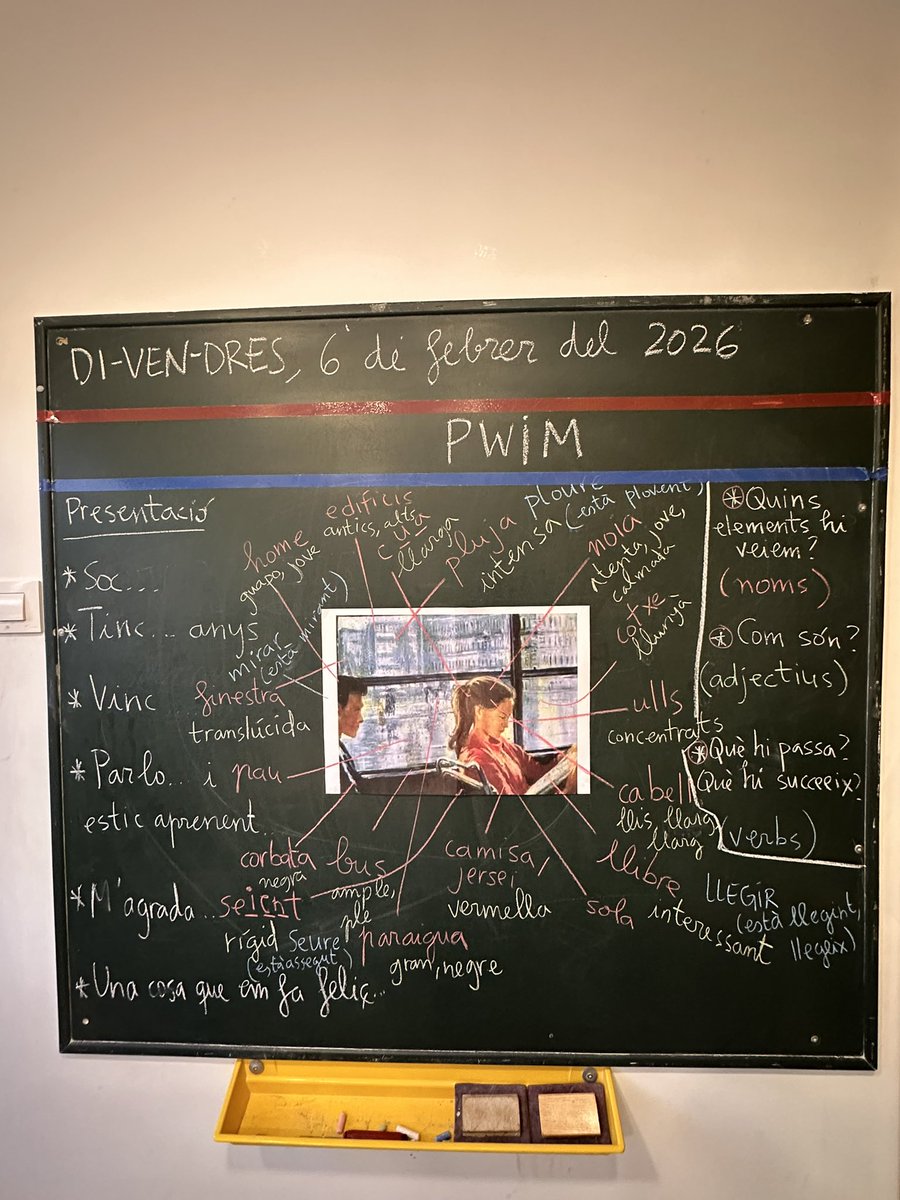 DI-VEN-DRES, 6 de febrer del 2026
PWIM
Presentació
* Soc...
* Tinc... anys
* Vinc
* Parlo... i
estic aprenent...
* M'agrada...
* Una cosa que em fa feliç...
home
guapo, jove
mirar
(està mirant)
edificis
antics, alts
cua
llarga
pluja
intensa
ploure
(està plovent)
noia
atenta, jove,
calmada
cotxe
llunyà
finestra
translúcida
pau
ulls
concentrats
cabell
llis, llarg,
llarg
corbata
negra
bus
ample,
ple
camisa,
jersei
vermella
llibre
interessant
LLEGIR
(està llegint,
llegeix)
sola
seient
rígid
seure,
(està assegut)
paraigua
gran, negre
* Quins
elements hi
veiem?
(noms)
* Com són?
(adjectius)
* Què hi passa?
Què hi succeeix?
(verbs)